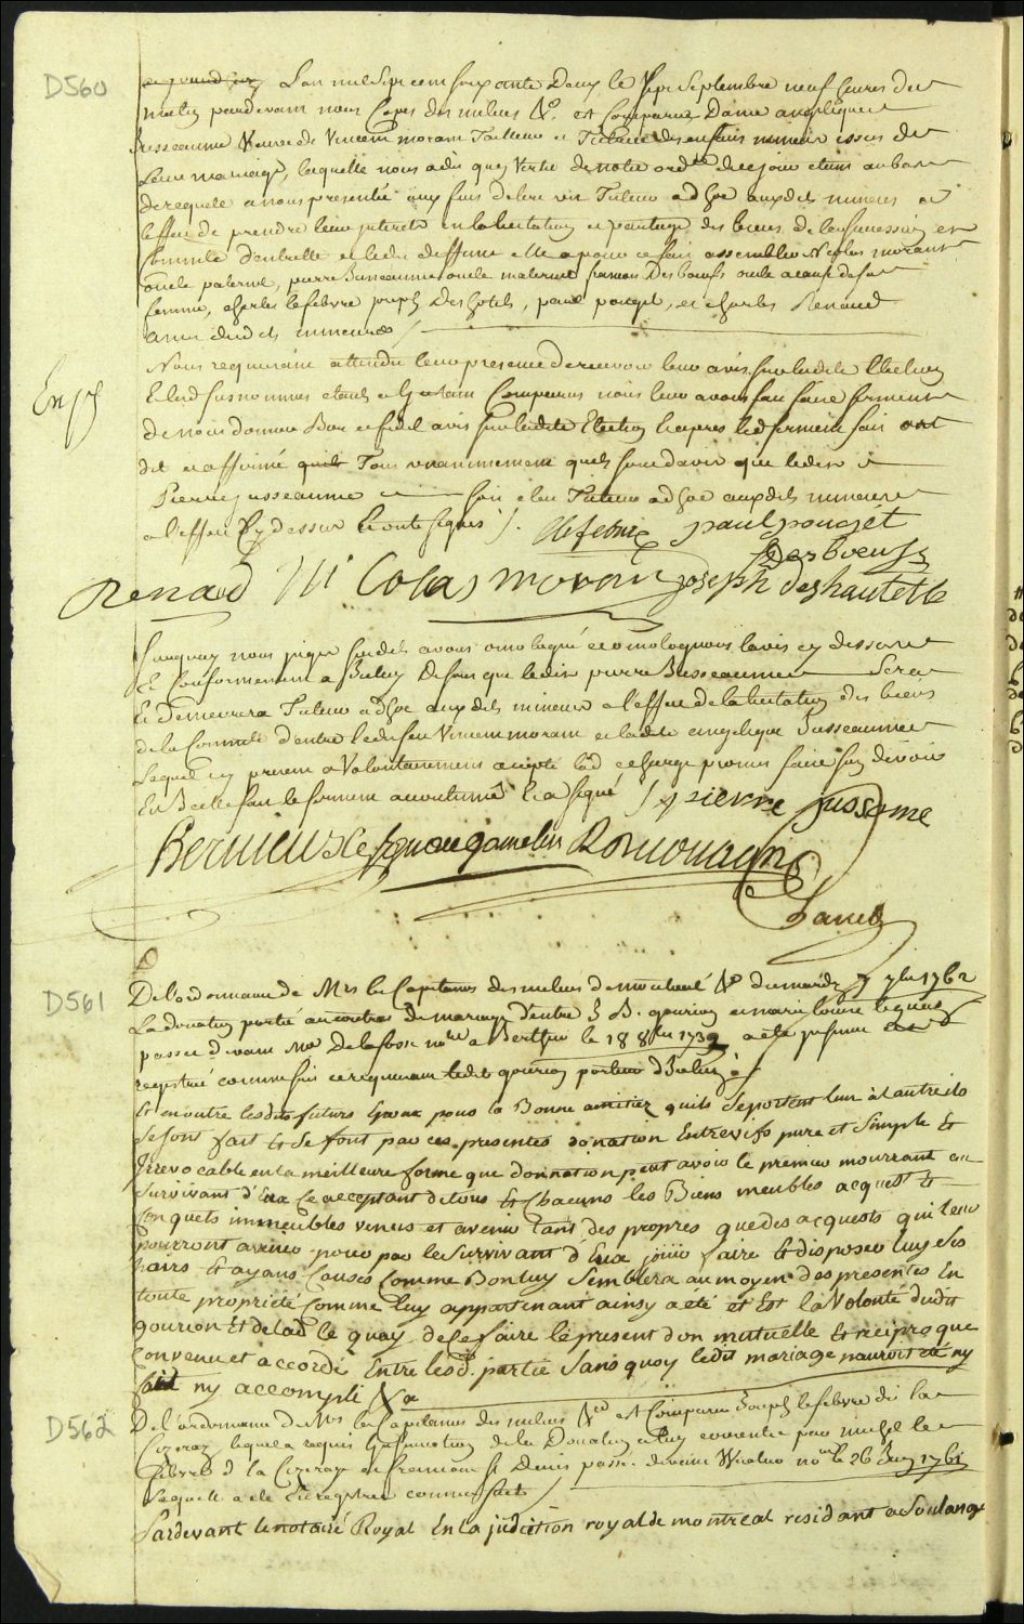 D560
L'an mil Sept cent soixante Deux le Sept Septembre neuf heures du
matin pardevant nous Capes des milices &ª. est Comparue Dame angelique
Jusseaume Veuve de Vincent morant Tutrice des enfans mineurs issus de
Leur mariage, laquelle nous a dit qu'en Vertu de notre ordce de ce jour étant au bas
de requete a nous presentée aux fins d'elire un Tuteur ad hoc auxdits mineurs a
l'effet de prendre leurs interets en la licitation et partage des biens de la succession et
Communté d'entr'elle et ledit deffunt elle a pour ce fait assembler Nicolas morant
oncle paternel, pierre Jusseaume oncle maternel, Desboeufs oncle a cause de sa
femme, charles lefebvre joseph Deshotels, paul pouget, et charles Renaud
amis desdits mineurs /
Enjs
Nous requerant attendu leur presence de recevoir leur avis sur ladite Election
De nous donner Bon et fidel avis sur ladite Election et apres led serment fait ont
dit et affirmé Tous unanimement quils sont d'avis que ledit
Pierre jusseaume soit elu Tuteur ad hoc auxdits mineurs
a l'effet Cy dessus et ont signés /. lefebvre paul pougét
Desboeufs
Renaud Ni Colas moran joseph deshautelle
surquoy nous juges susdits avons omologué et omologuons l'avis cy dessus
Et Conformement a Iceluy Disons que ledit pierre Jusseaume Sera
Et Demeurera Tuteur ad hoc auxdits mineurs a l'effet de la licitation des biens
de la Communté d'entre ledit feu Vincent morant et ladite angelique Jusseaume
Lequel cy present a Volontairement accepté lad charge promis faire son devoir
En Icelle fait le serment accoutumé Et a signé / pierre Jussome
Hervieux Le Ignace gamelin
Panet
D561
De l'ordonnance de Mrs les Capitaines des milices de montreal &ª du mardy 7 7bre 1762
La donation portée au contrat de mariage d'entre J. B. gourion et marie louise lequay
passé devant Me Delafosse nore a Berthier le 18 8bre 1739 a été
registré comme suit ce requerant ledit gourion porteur d'Icelui
Et en outre lesdits futurs pour la Bonne amitiez quils Se portent lun à l'autre ils
Se sont fait Et Se font par ces presentes donation Entrevifs pure et Simple Et
Irrevocable en la meilleure forme que donnation peut avoir le premier mourrant au
Survivant d'Eux Ce acceptant de tous Et Chacuns les Biens meubles acquest Et
Conquets immeubles venus et avenir tant des propres que des acquests qui leur
pourront avenir pour par le Survivant d'Eux jouir faire Et disposer luy ses
hoirs Et ayans Causes Comme Bon luy Semblera au moyen des presentes En
toute propriété Comme luy appartenant ainsy a été et Est la Volonté dudit
gourion Et de lad le quay de se faire le present don mutuelle Et reciproque
Convenu et accordé Entre lesd. partie Sans quoy ledit mariage nauroit été ny
fait ny accompli &ª
D562
De l'ordonnance de Mrs les Capitaines des milices &ª est Comparu Joseph lefebvre dit la
Cizeray lequel a requis Insinuation de la Donation a luy
febvre d la Cizeraye et St Denis passé devant nore le 26 Juin 1761
Laquelle a été Enregistrée comme suit /
Pardevant le notaire Royal En la judiction royal de montreal residant a Soulange